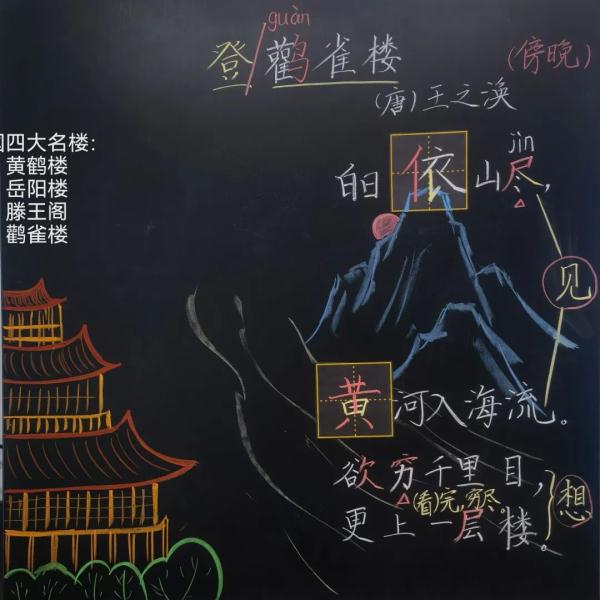 guàn
登/鹳雀楼
(傍晚)
(唐)王之涣
四大名楼:
黄鹤楼
岳阳楼
滕王阁
鹳雀楼
jìn
白日依山尽,
见
黄河入海流。
欲穷千里目,
(看)完,穷尽。
想
更上一层楼。